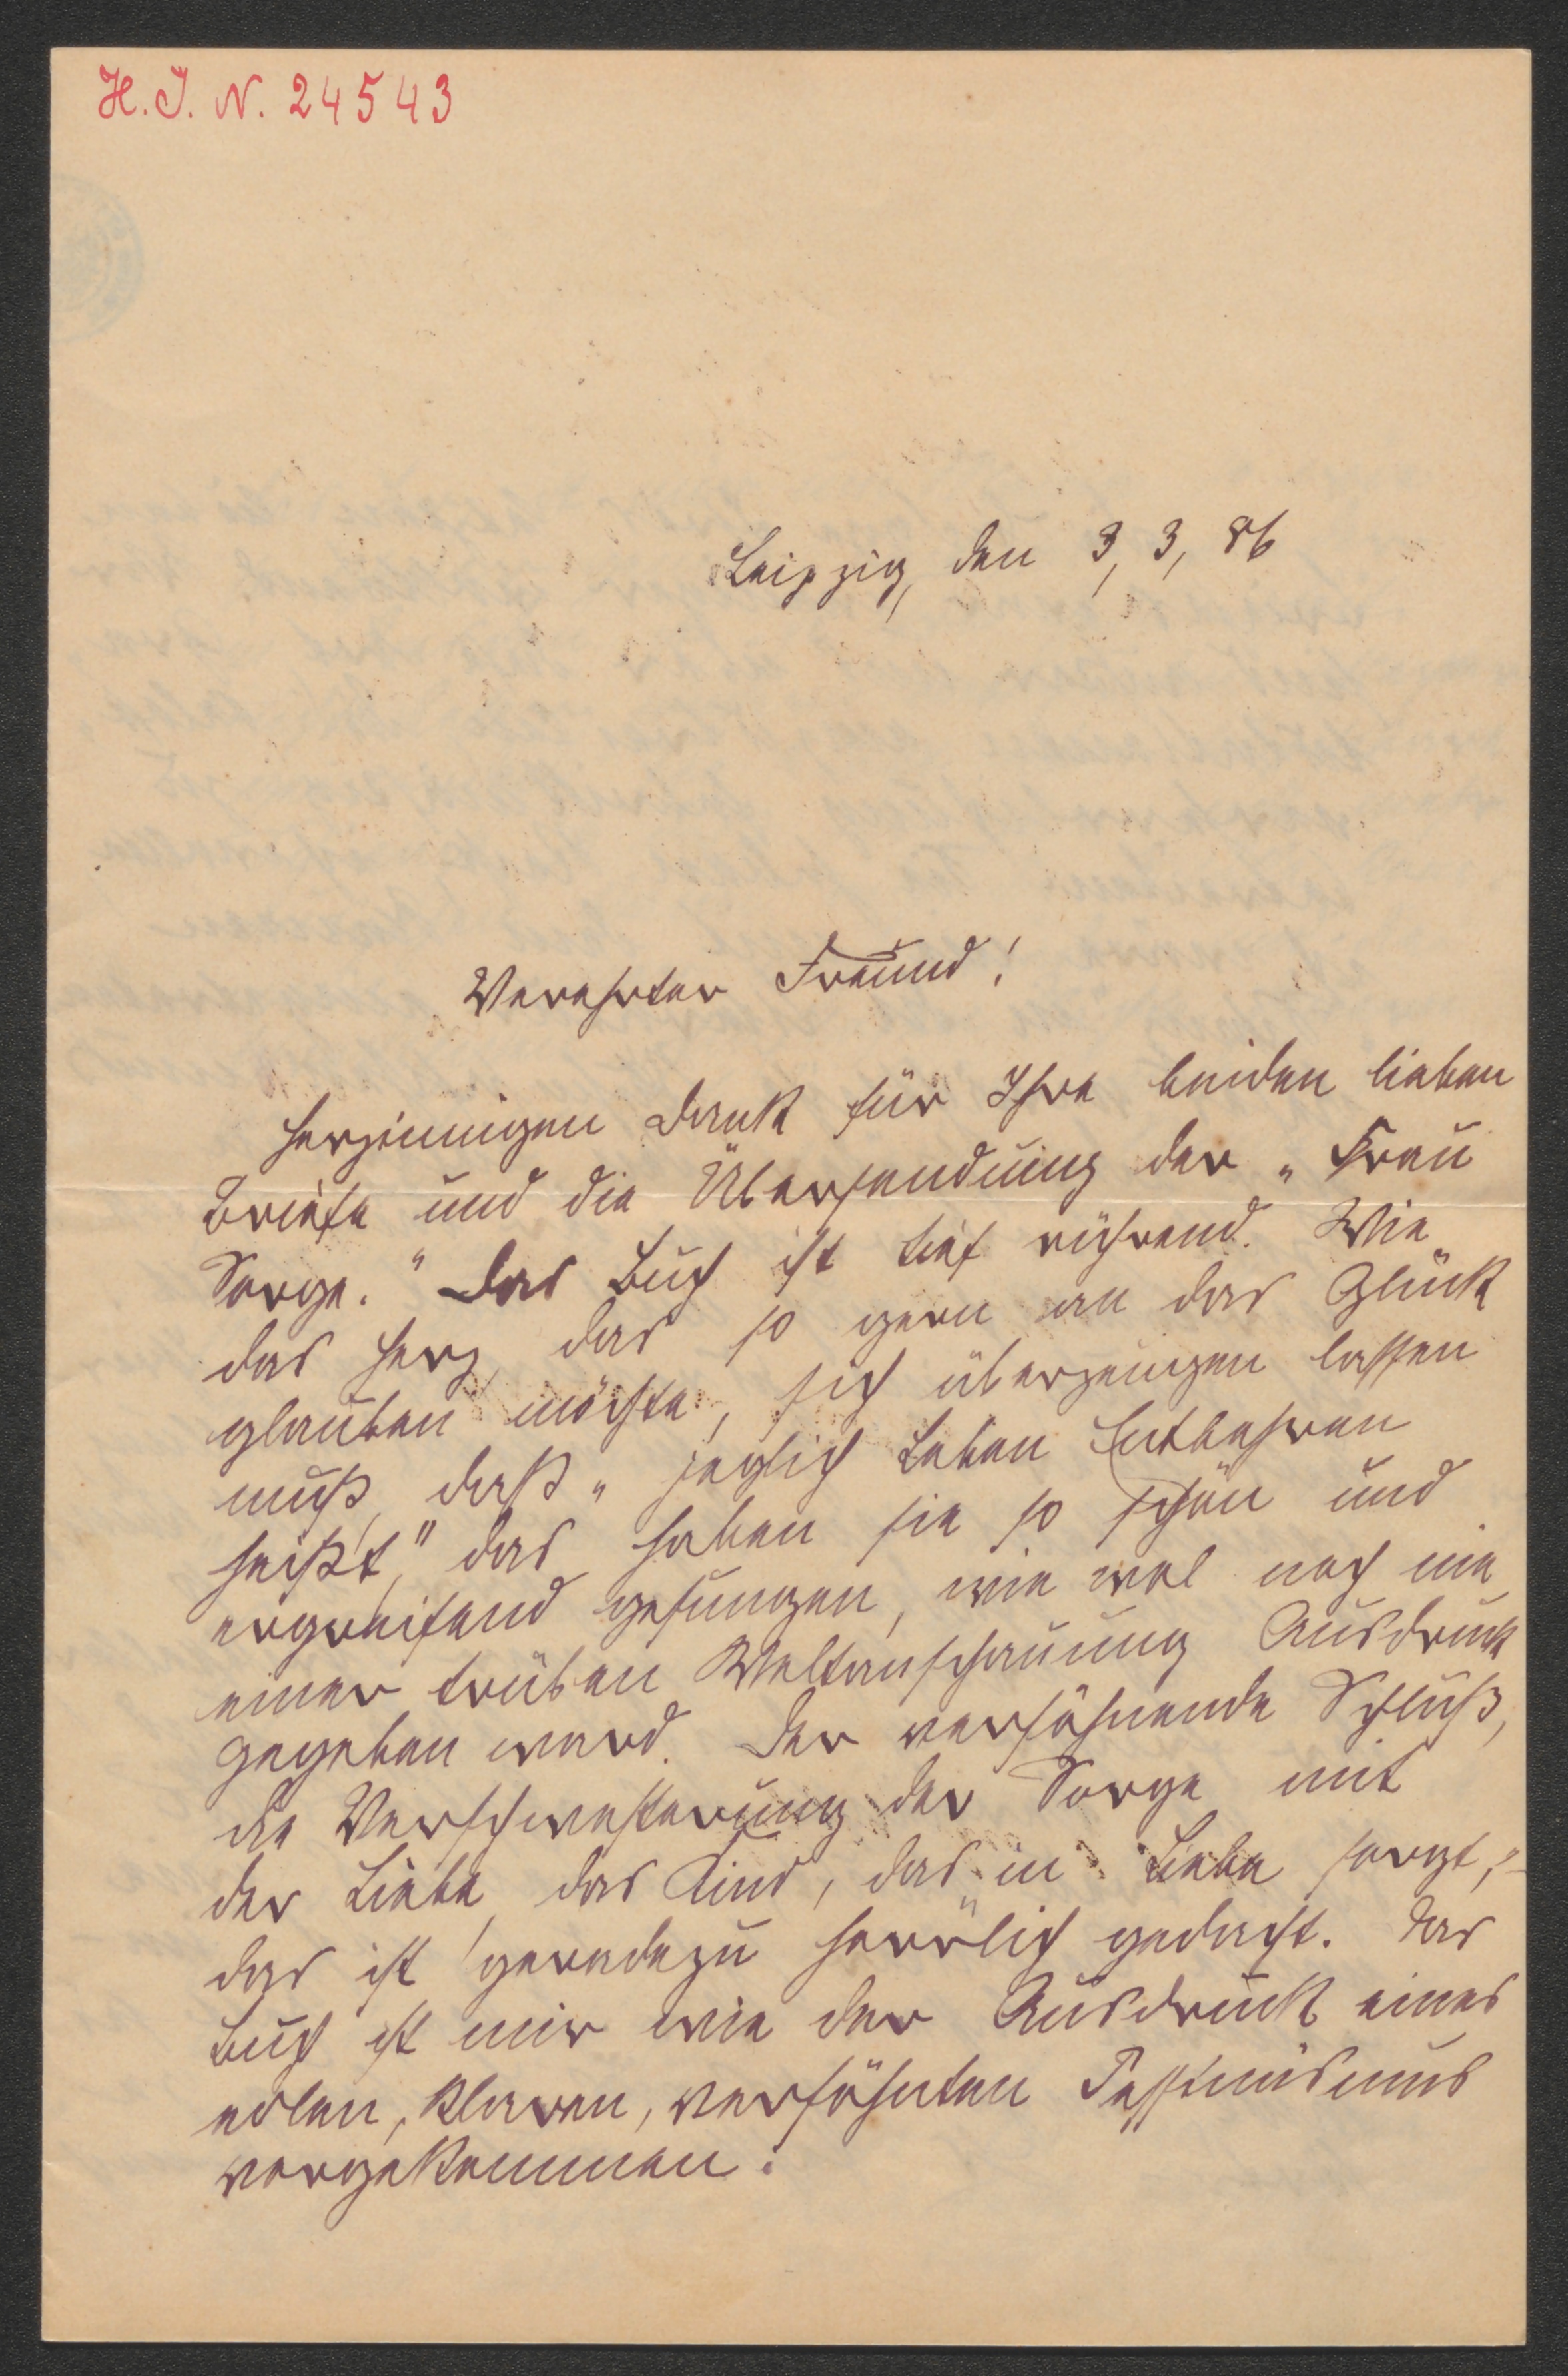 H. I. N. 24543
Leipzig, den 3, 3, 86
Verehrter Freund!
Herzinnigen Dank für Ihre beiden lieben
Briefe und die Übersendung der „Frau
Sorge." Das Buch ist tief rührend. Wie
das Herz, das so gern an das Glück
glauben möchte, sich überzeugen lassen
muß, daß „jeglich Leben Entbehren
heißt", das haben sie so schön und
ergreifend gesungen, wie wol noch nie
einer trüben Weltanschauung Ausdruck
gegeben ward. Der versöhnende Schluß,
die Verschwesterung der Sorge mit
der Liebe, das Kind, das „in Liebe sorgt,"
das ist geradezu herrlich gedacht. Das
Buch ist mir wie der Ausdruck eines
edlen, klaren, versöhnten Pessimismus
vorgekommen.